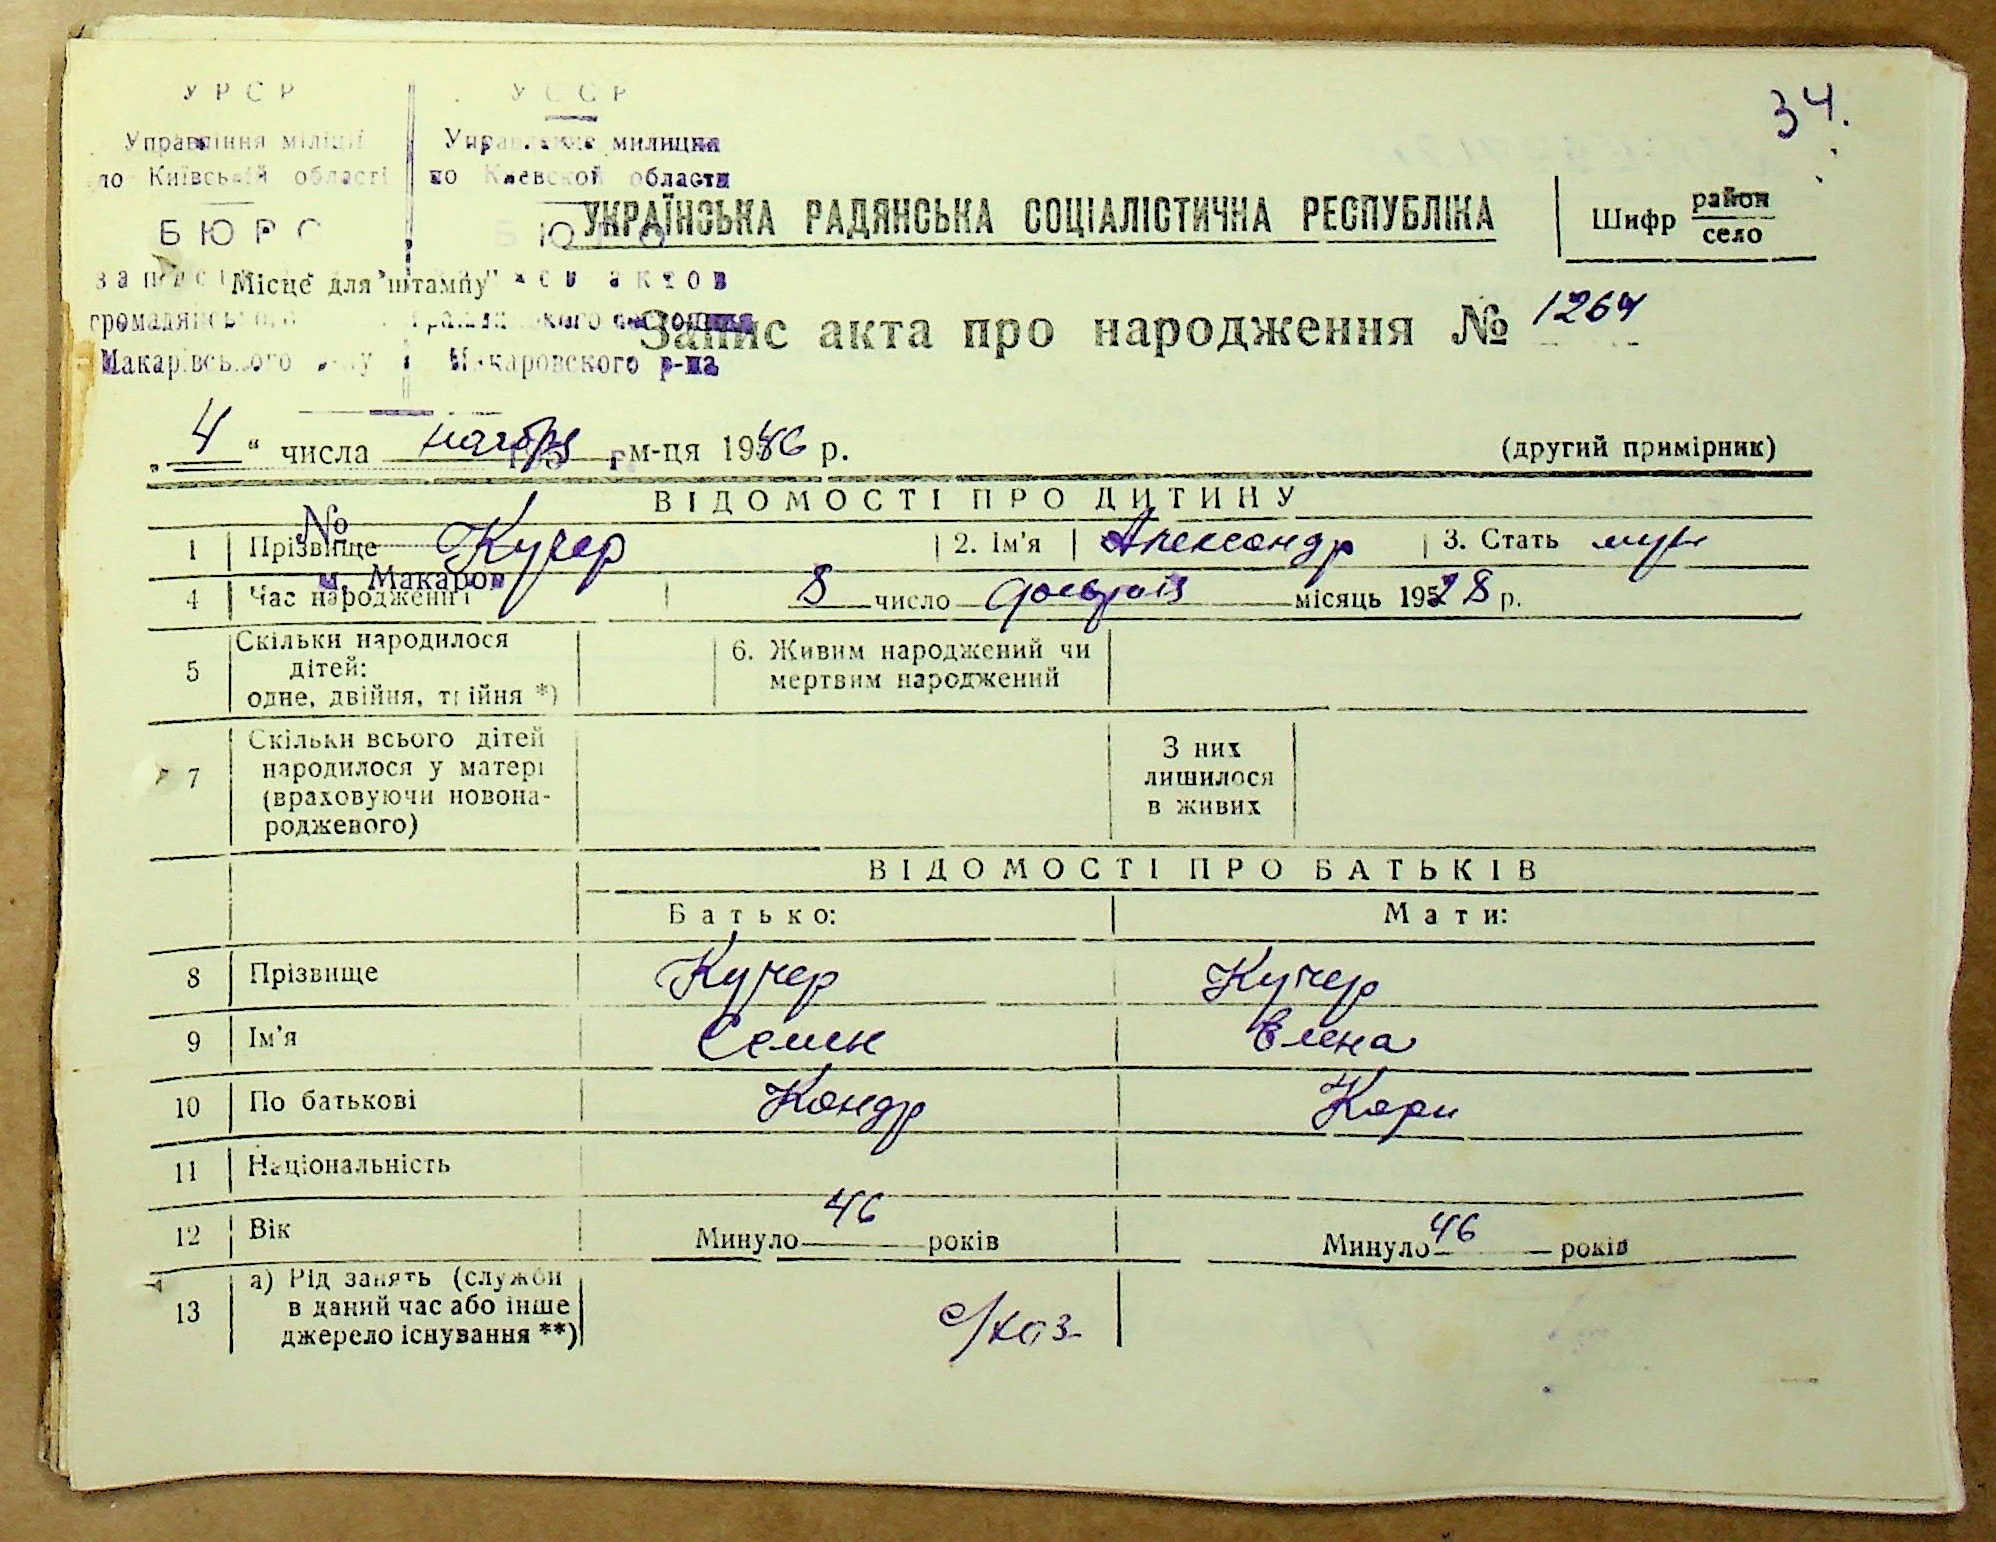 34.
УРСР УССР
Управління міліції Управление милиции
по Київській області по Киевской области
БЮРО БЮРО
УКРАЇНСЬКА РАДЯНСЬКА СОЦІАЛІСТИЧНА РЕСПУБЛІКА
Шифр район
село
"Місце для штампу"
актов
громадянського
Макарівського р-ну Макаровского р-на
Запис акта про народження № 1264
„4“ числа ноября м-ця 1946 р.
(другий примірник)
195 г.
ВІДОМОСТІ ПРО ДИТИНУ
№
1 Прізвище Кучер 2. Ім'я Александр 3. Стать муж
м. Макаров
4 Час народження 8 число февраля місяць 1928 р.
5 Скільки народилося
дітей:
одне, двійня, трійня *)
6. Живим народжений чи
мертвим народжений
7 Скільки всього дітей
народилося у матері
(враховуючи новона-
родженого)
З них
лишилося
в живих
ВІДОМОСТІ ПРО БАТЬКІВ
Батько: Мати:
8 Прізвище Кучер Кучер
9 Ім'я Семен Елена
10 По батькові Кондр Карп
11 Національність
12 Вік Минуло 46 років Минуло 46 років
13 а) Рід занять (служби
в даний час або інше
джерело існування **)
с/хоз